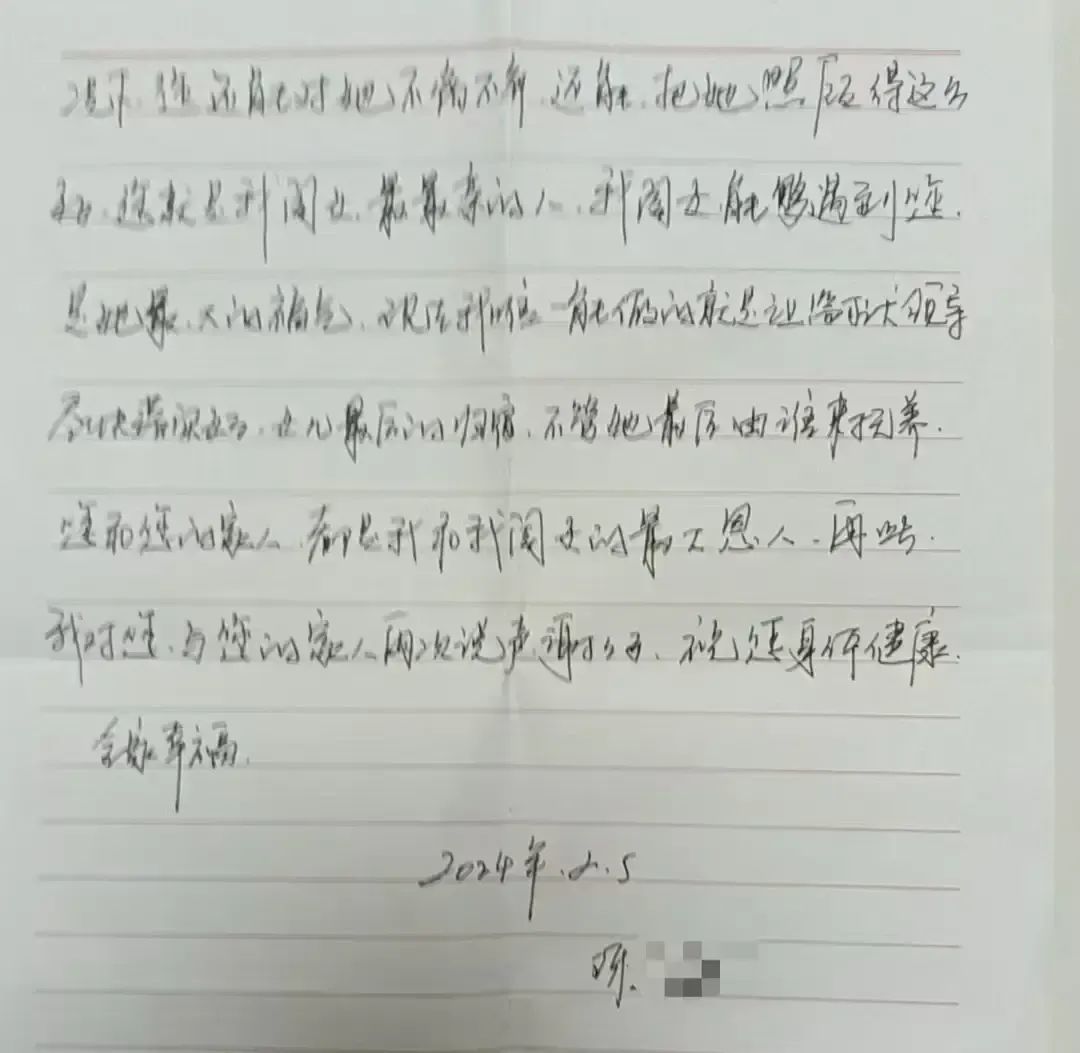 况下，您还能对她不离不弃，还能，把她照顾得这么
好，您就是我闺女，最最亲的人，我闺女，能够遇到您，
是她最，大的福气，现在我唯一能做的就是让
领导
女儿最后的归宿，不管她最后由谁来抚养，
您和您的家人，都是我和我闺女的最大恩人，再
我对您，与您的家人再次说声谢谢，祝您身体健康，
全家幸福，
2024年.2.5
陈.